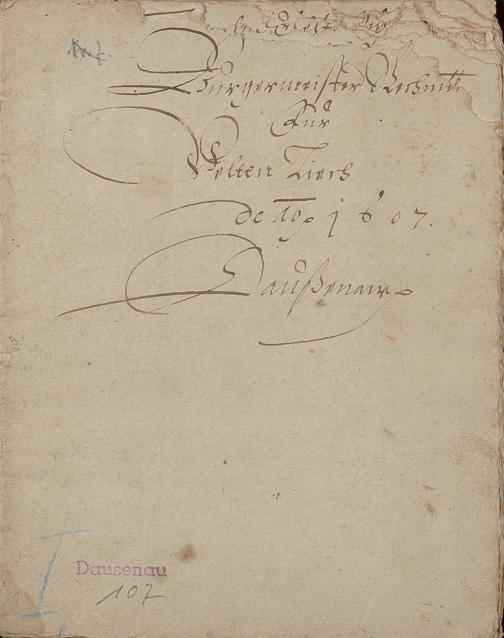 Burgermeister Rechnu
Für
Velten Tiers
de Ao. 1607.
Daußenaw
I
Dausenau
107